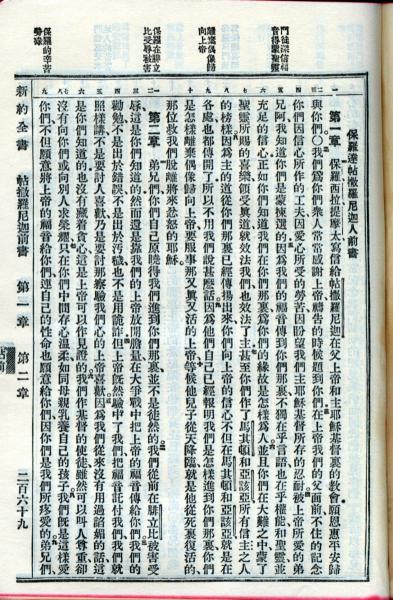 保羅達帖撒羅尼迦人前書
門徒深信福音得蒙聖靈
離棄偶像歸向上帝
保羅在腓立比受辱被害
保羅的辛苦勞碌
第一章 保羅、西拉、提摩太、寫信給帖撒羅尼迦在父上帝和主耶穌基督裏的教會、願恩惠平安歸
與你們〇我們爲你們衆人常常感謝上帝、禱告的時候題到你們、在上帝我們的父面前、不住的記念
你們因信心所作的工夫、因愛心所受的勞苦、因盼望我們主耶穌基督所存的忍耐、被上帝所愛的弟
兄阿、我知道你們是蒙揀選的、因爲我們的福音傳到你們那裏、不獨在乎言語、也在乎權能、和聖靈、並
充足的信心、正如你們知道我們在你們那裏、爲你們的緣故、是怎樣爲人、並且你們在大難之中、蒙了
聖靈所賜的喜樂、領受眞道、就效法我們、也效法了主、甚至你們作了馬其頓和亞該亞所有信主之人
的榜樣、因爲主的道從你們那裏已經傳揚出來、你們向上帝的信心、不但在馬其頓和亞該亞、就是在
各處、也都傳開了、所以不用我們說甚麽話、因爲他們自己已經報明我們是怎樣進到你們那裏、你們
是怎樣離棄偶像歸向上帝、要服事那又眞又活的上帝、等候他兒子從天降臨、就是他從死裏復活的、
那位救我們脫離將來忿怒的耶穌
第二章 弟兄們、你們自己原曉得我們進到你們那裏、並不是徒然的、我們從前在腓立比被害受
辱、這是你們知道的、然而還是靠我們的上帝放開膽量、在大爭戰中把上帝的福音傳給你們、我們的
勸勉、不是出於錯誤、不是出於汚穢、也不是用詭詐、但上帝旣然驗中了我們、把福音託付我們、我們就
照樣講、不是要討人喜歡、乃是要討那察驗我們心的上帝喜歡、因爲我們從來沒有用過諂媚的話、這
是你們知道的、也沒有藏着貪心、這是上帝可以作見證的、我們作基督的使徒、雖然可以叫人尊重、卻
沒有向你們或向別人求榮耀、只在你們中間存心溫柔、如同母親乳養自己的孩子、我們旣是這樣愛
你們、不但願意將上帝的福音給你們、連自己的性命也願意給你們、因你們是我們所疼愛的、弟兄們、
新約全書 帖撒羅尼迦前書 第一章 第二章 二百六十九